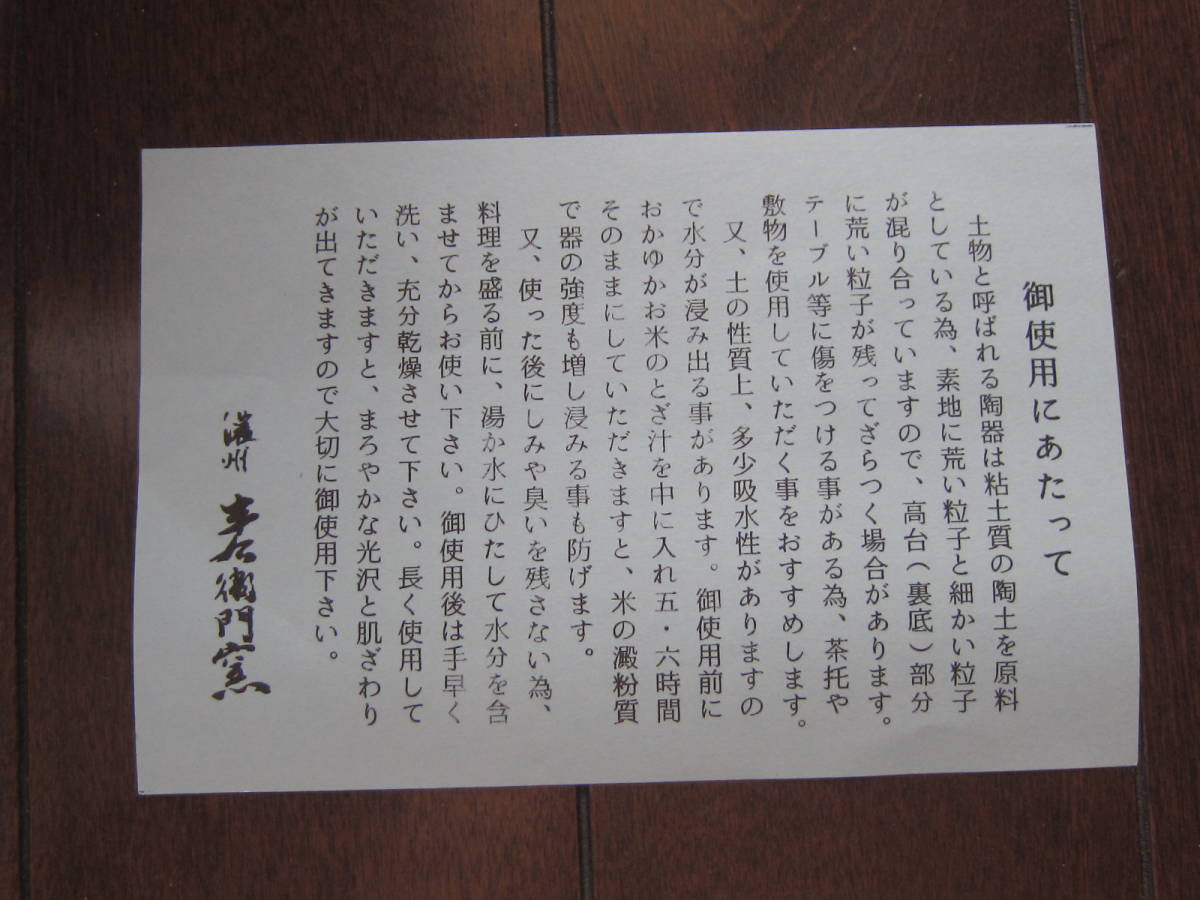 御使用にあたって
土物と呼ばれる陶器は粘土質の陶土を原料
としている為、素地に荒い粒子と細かい粒子
が混り合っていますので、高台(裏底)部分
に荒い粒子が残ってざらつく場合があります。
テーブル等に傷をつける事がある為、茶托や
敷物を使用していただく事をおすすめします。
又、土の性質上、多少吸水性がありますの
で水分が浸み出る事があります。御使用前に
おかゆかお米のとぎ汁を中に入れ五・六時間
そのままにしていただきますと、米の澱粉質
で器の強度も増し浸みる事も防げます。
又、使った後にしみや臭いを残さない為、
料理を盛る前に、湯か水にひたして水分を含
ませてからお使い下さい。御使用後は手早く
洗い、充分乾燥させて下さい。長く使用して
いただきますと、まろやかな光沢と肌ざわり
が出てきますので大切に御使用下さい。
衛門窯